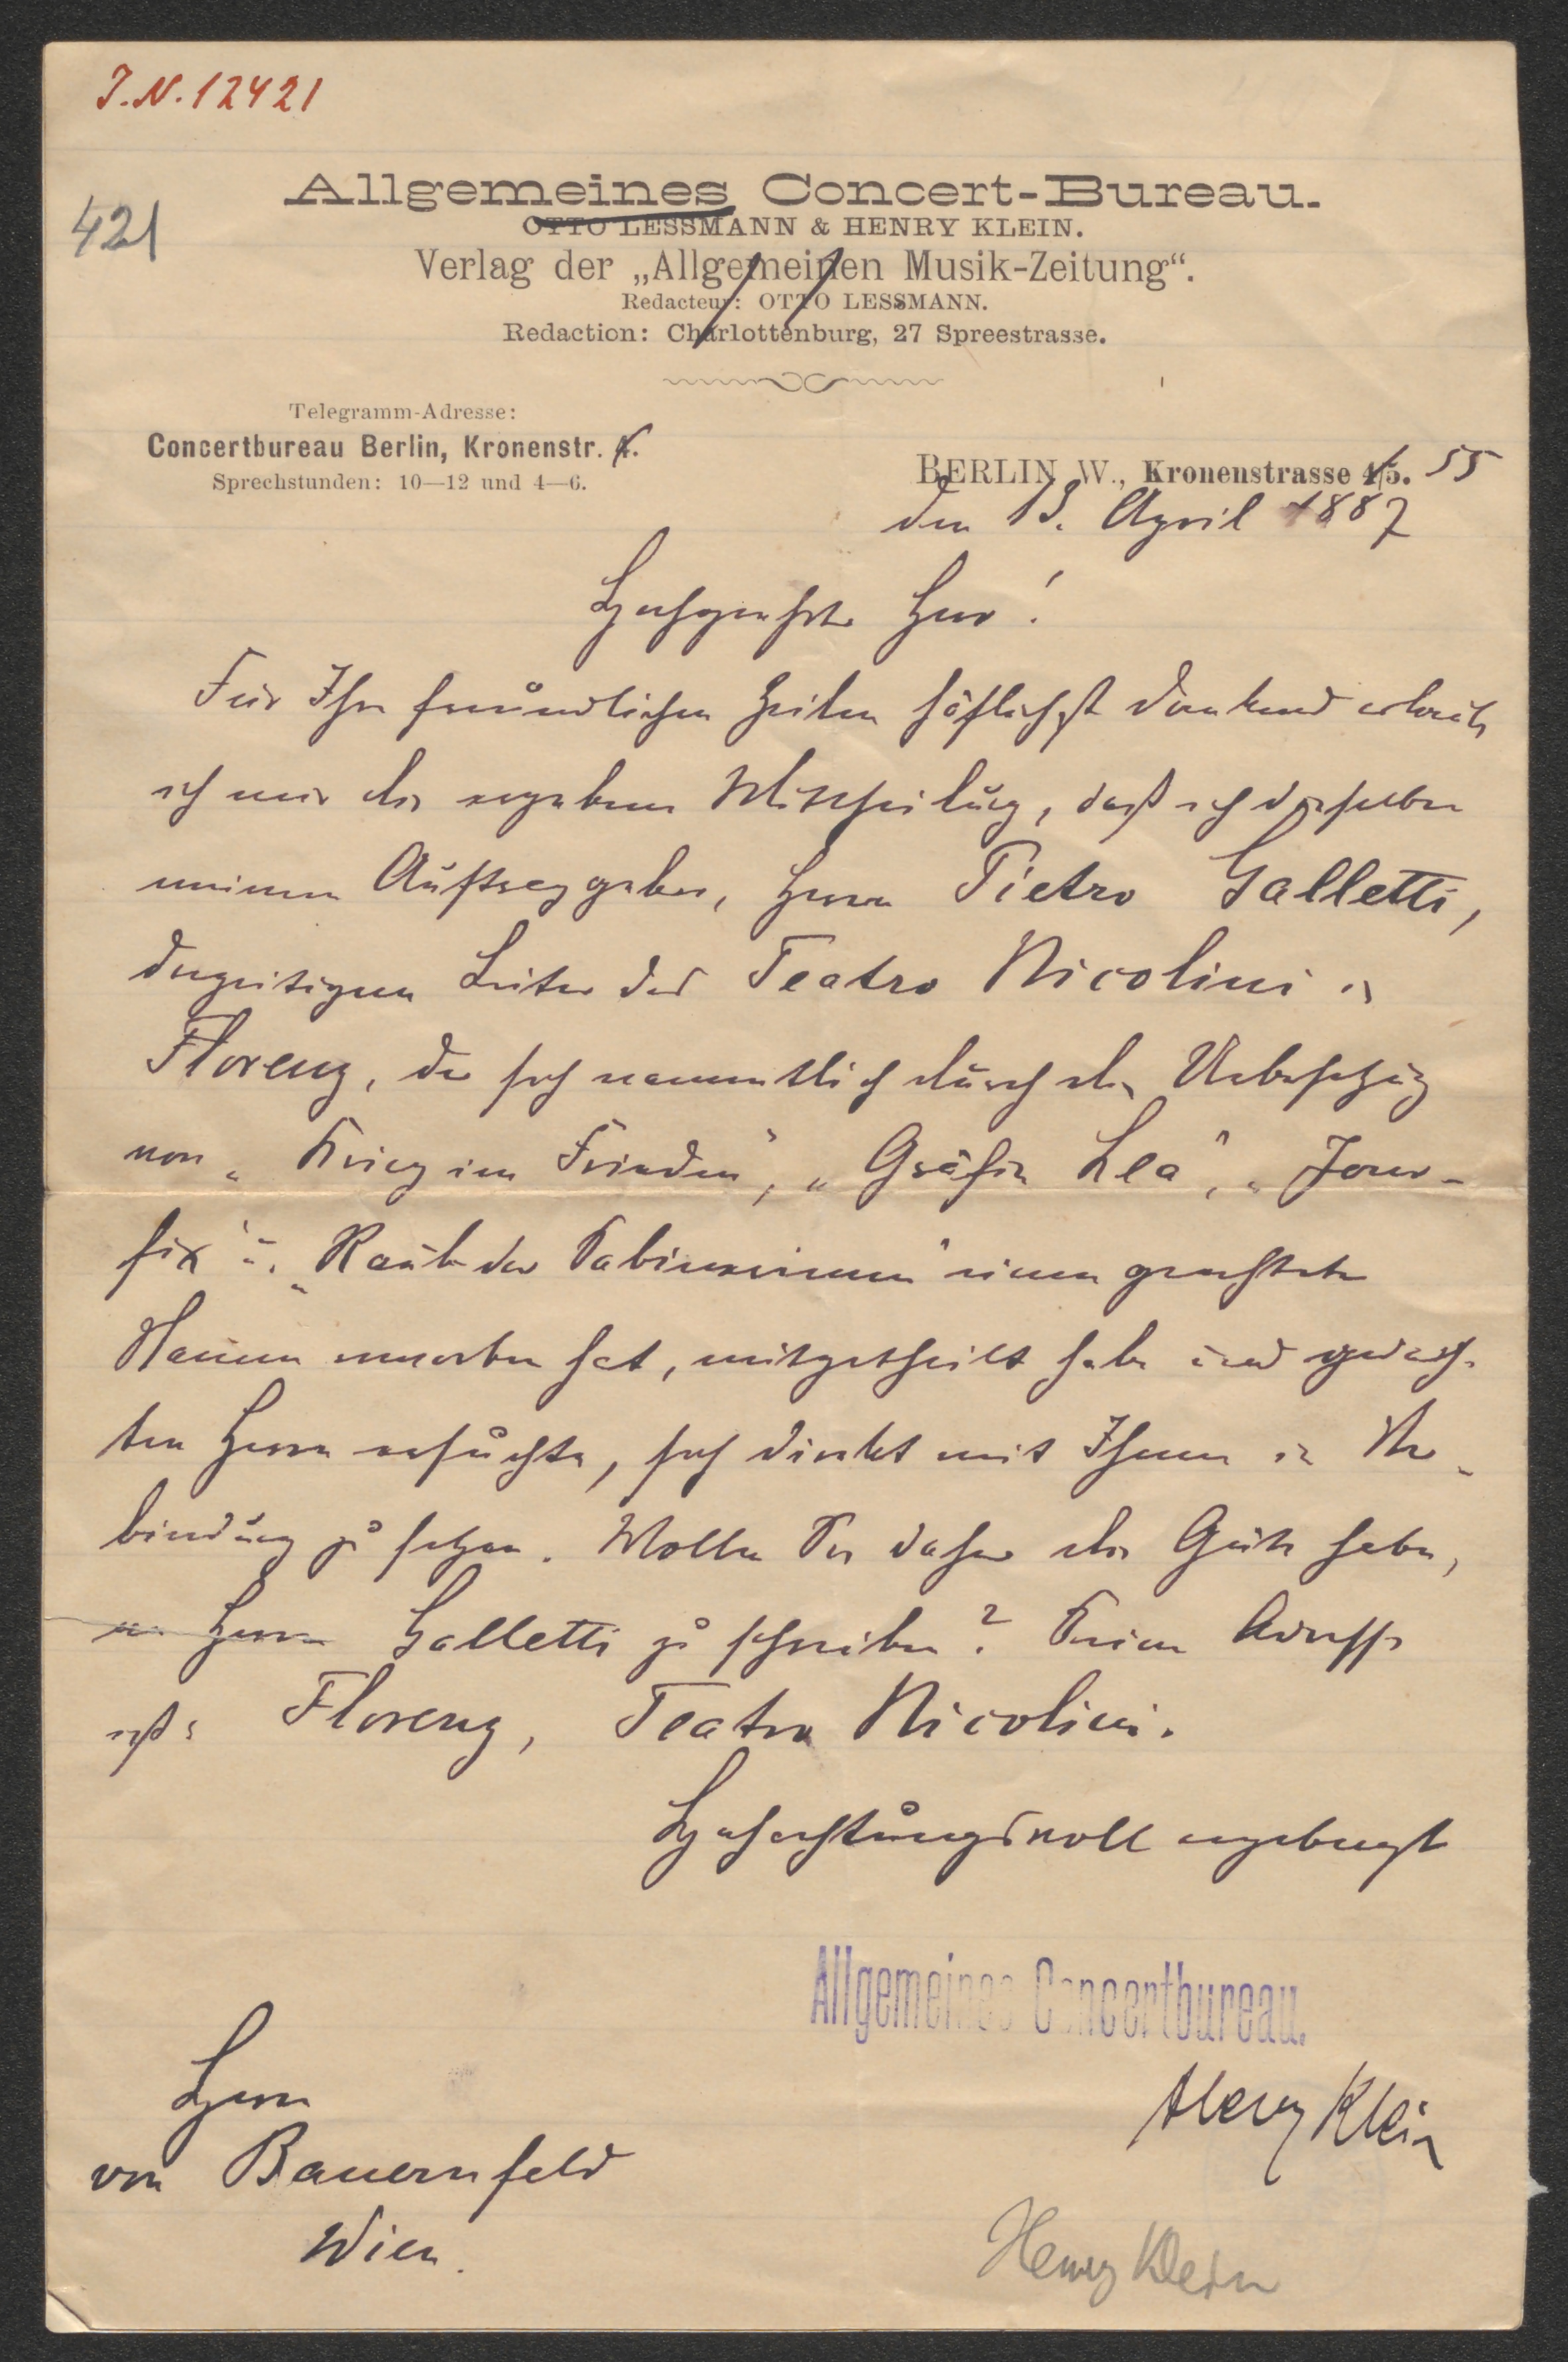 J.N. 12421
421
Allgemeines Concert-Bureau.
OTTO LESSMANN & HENRY KLEIN.
Verlag der „Allgemeinen Musik-Zeitung“.
Redacteur: OTTO LESSMANN.
Redaction: Charlottenburg, 27 Spreestrasse.
Telegramm-Adresse:
Concertbureau Berlin, Kronenstr.
Sprechstunden: 10—12 und 4—6.
BERLIN W., Kronenstrasse 45. 55
den 13. April 1887
Hochgeehrter Herr!
Für Ihre freundlichen Zeilen höflichst dankend erlaube
ich mir die ergebene Mittheilung, daß ich dieselben
meinem Auftraggeber, Herrn Pietro Galletti,
derzeitigen Leiter des Teatro Nicolini in
Florenz, der sich namentlich durch die Uebersetzung
von „Krieg im Frieden“, „Gräfin Lea“, „Jour-
fix“ u. „Raub der Sabinerinnen“ einen geachteten
Namen erworben hat, mitgetheilt habe und gedach-
ten Herrn ersuchte, sich direkt mit Ihnen in Ver-
bindung zu setzen. Wollen Sie daher die Güte haben,
an Herrn Galletti zu schreiben? Seine Adresse
ist: Florenz, Teatro Nicolini.
Hochachtungsvoll ergebenst
Allgemeines Concertbureau.
Henry Klein
Herrn
von Bauernfeld
Wien.
Henry Klein